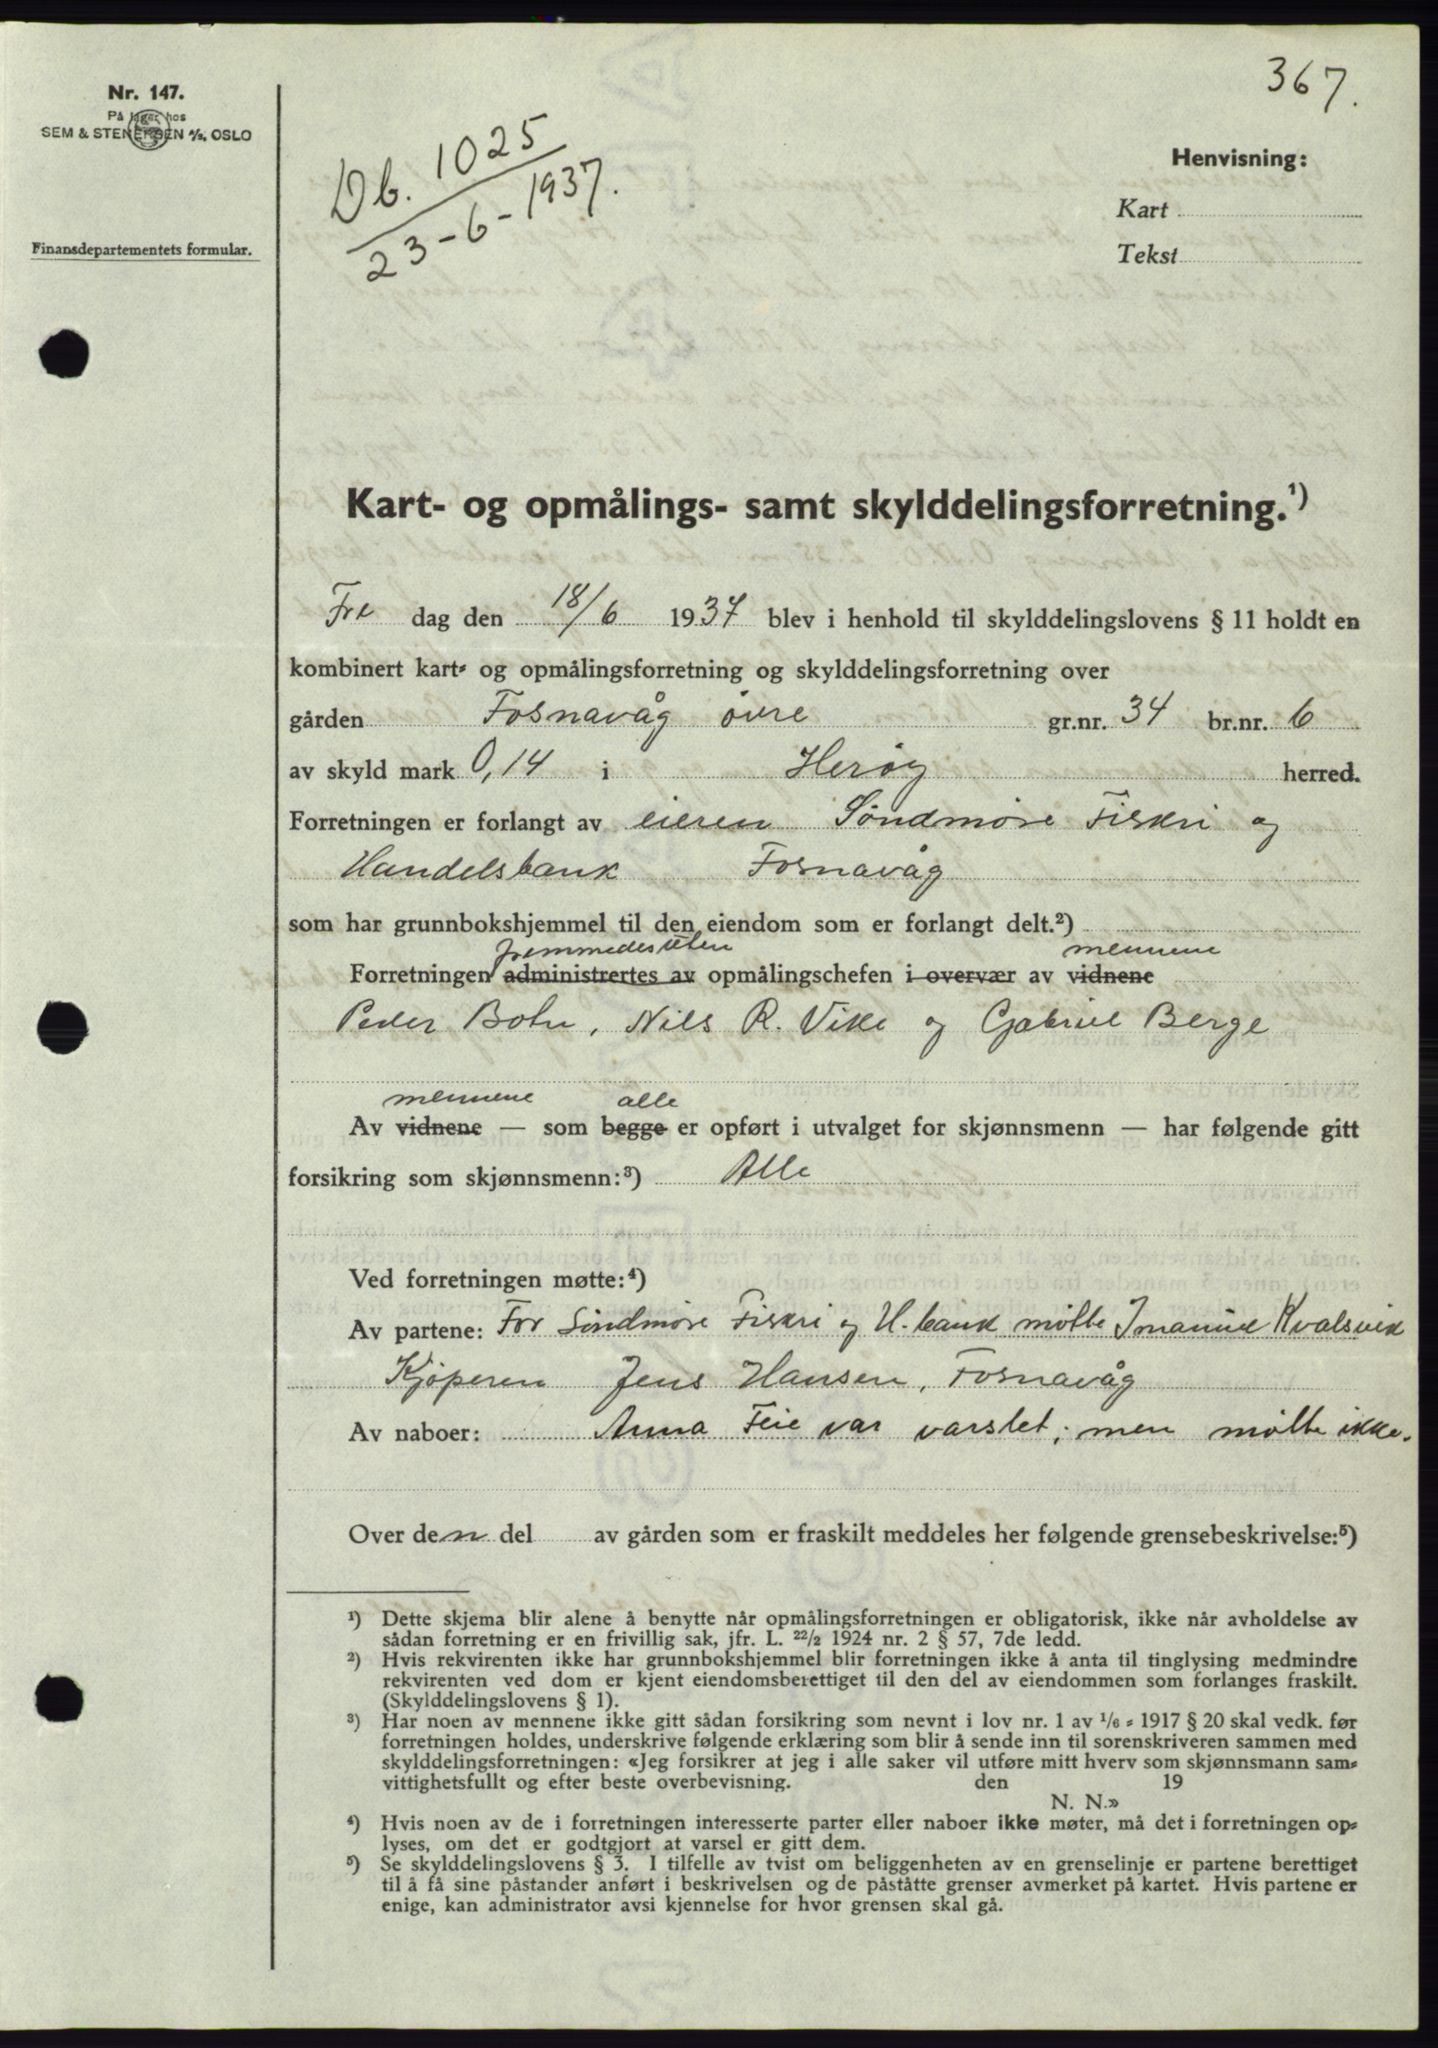 367.
Nr. 147.
På lager hos
SEM & STENERSEN A/S, OSLO
Db. 1025
23-6-1937.
Henvisning:
Kart
Tekst
Finansdepartementets formular.
Kart- og opmålings- samt skylddelingsforretning.¹)
Fre dag den 18/6 1937 blev i henhold til skylddelingslovens § 11 holdt en
kombinert kart- og opmålingsforretning og skylddelingsforretning over
gården Fosnavåg øvre gr.nr. 34 br.nr. 6
av skyld mark 0,14 i Herøy herred.
Forretningen er forlangt av eieren Søndmøre Fiskri og
Handelsbank Fosnavåg
som har grunnbokshjemmel til den eiendom som er forlangt delt.²)
fremmedes uten mennene
Forretningen administrertes av opmålingschefen i overvær av vidnene
Peder Bohn, Nils R. Vike og Gabriel Berge
mennene alle
Av vidnene — som begge er opført i utvalget for skjønnsmenn — har følgende gitt
forsikring som skjønnsmenn:³) Alle
Ved forretningen møtte:⁴)
Av partene: For Søndmøre Fiskri og H.bank møtte Imanuel Kvalsvik
Kjøperen Jens Hansen, Fosnavåg
Av naboer: Anna Feie var varslet, men møtte ikke.
Over den del av gården som er fraskilt meddeles her følgende grensebeskrivelse:⁵)
¹) Dette skjema blir alene å benytte når opmålingsforretningen er obligatorisk, ikke når avholdelse av
sådan forretning er en frivillig sak, jfr. L. 22/2 1924 nr. 2 § 57, 7de ledd.
²) Hvis rekvirenten ikke har grunnbokshjemmel blir forretningen ikke å anta til tinglysing medmindre
rekvirenten ved dom er kjent eiendomsberettiget til den del av eiendommen som forlanges fraskilt.
(Skylddelingslovens § 1).
³) Har noen av mennene ikke gitt sådan forsikring som nevnt i lov nr. 1 av 1/6 - 1917 § 20 skal vedk. før
forretningen holdes, underskrive følgende erklæring som blir å sende inn til sorenskriveren sammen med
skylddelingsforretningen: «Jeg forsikrer at jeg i alle saker vil utføre mitt hverv som skjønnsmann sam-
vittighetsfullt og efter beste overbevisning. den 19
N. N.»
⁴) Hvis noen av de i forretningen interesserte parter eller naboer ikke møter, må det i forretningen op-
lyses, om det er godtgjort at varsel er gitt dem.
⁵) Se skylddelingslovens § 3. I tilfelle av tvist om beliggenheten av en grenselinje er partene berettiget
til å få sine påstander anført i beskrivelsen og de påståtte grenser avmerket på kartet. Hvis partene er
enige, kan administrator avsi kjennelse for hvor grensen skal gå.